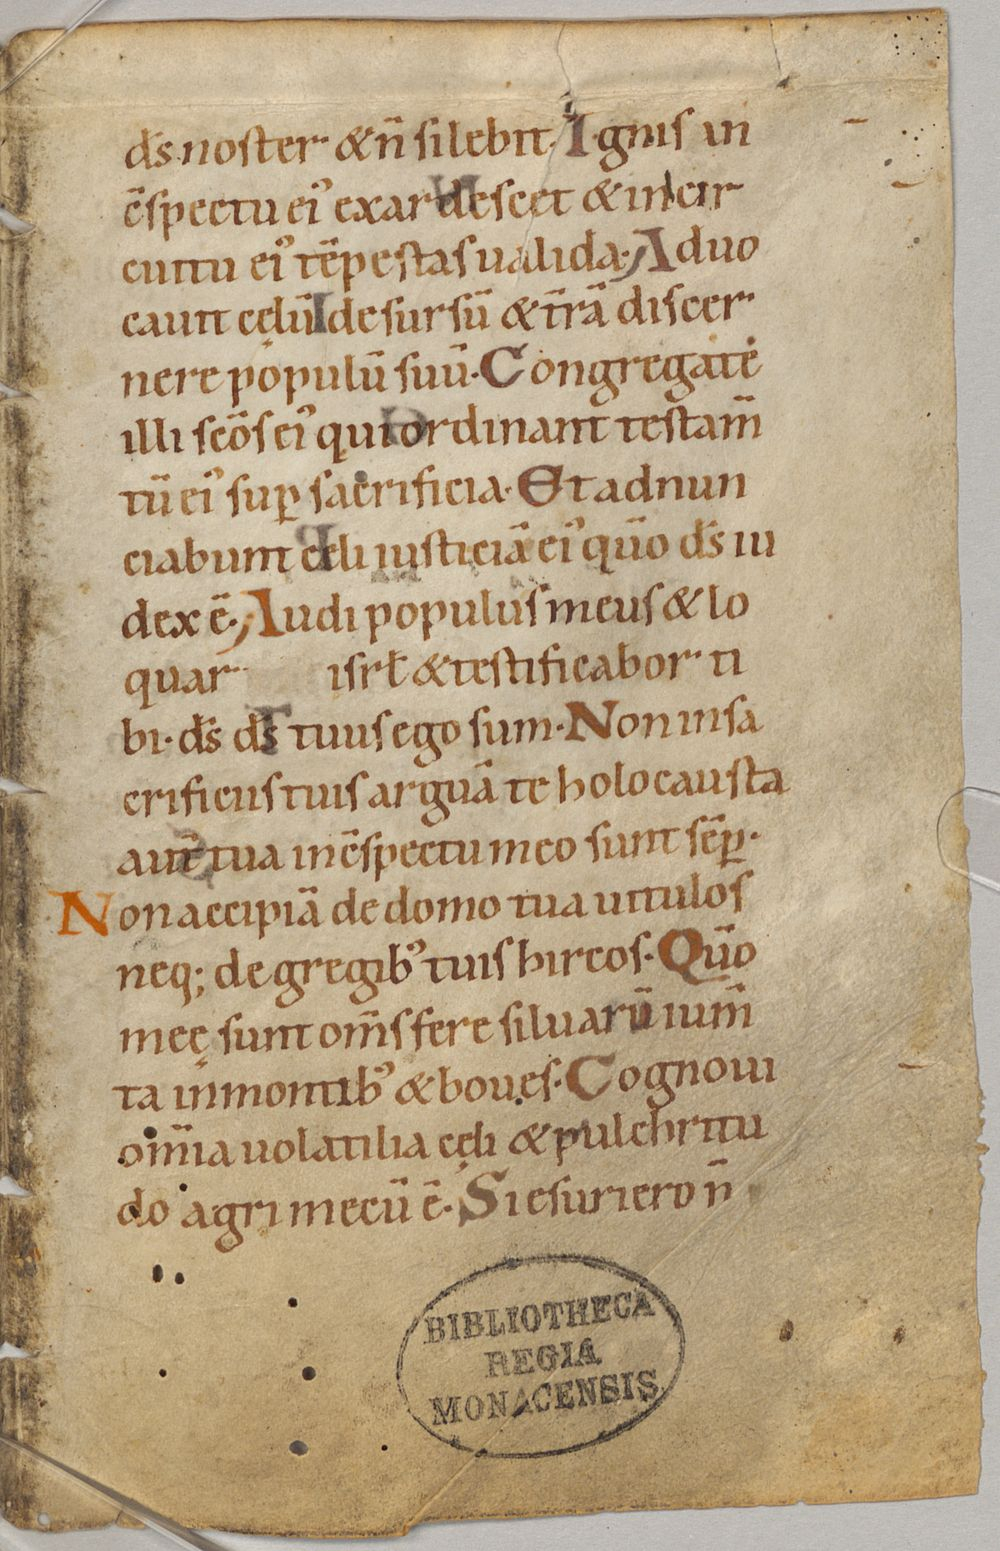 ds̄ noster & n̄ silebit. Ignis in
c̄spectu ei᾽ exardescet & in cir
cuitu ei᾽ tēpestas ualida. Aduo
cauit cęlū desursū & t̄rā discer
nere populū suū. Congregate
illi sc̄os ei᾽ qui ordinant testam̄
tū ei᾽ sup̱ sacrificia. Et adnun
ciabunt cęli iusticiā ei᾽ qūo ds̄ iu
dex ē. Audi populus meus & lo
quar isrł & testificabor ti
bi. ds̄ ds̄ tuus ego sum. Non in sa
crificiis tuis arguā te holocausta
aut̄ tua in c̄spectu meo sunt sēp̱.
Non accipiā de domo tua uitulos
neq; de gregib᾽ tuis hircos. Qūo
meę sunt om̄s fere siluarū ium̄
ta in montib᾽ & boues. Cognoui
om̄ia uolatilia cęli & pulchritu
do agri mecū ē. Si esuriero n̄
BIBLIOTHECA
REGIA
MONACENSIS